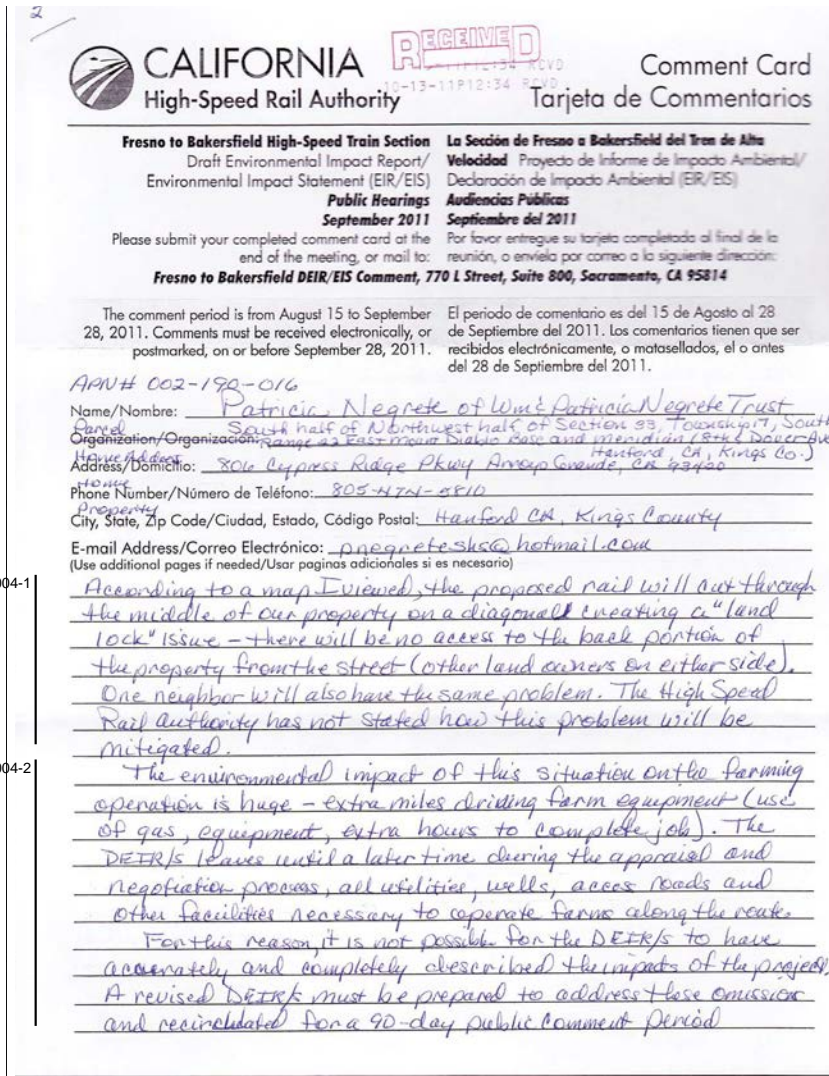 2
CALIFORNIA
High-Speed Rail Authority
RECEIVED
10-13-11P12:34 RCVD
Comment Card
Tarjeta de Commentarios
Fresno to Bakersfield High-Speed Train Section
Draft Environmental Impact Report/
Environmental Impact Statement (EIR/EIS)
Public Hearings
September 2011
Please submit your completed comment card at the
end of the meeting, or mail to:
La Sección de Fresno a Bakersfield del Tren de Alta
Velocidad Proyecto de Informe de Impacto Ambiental/
Declaración de Impacto Ambiental (EIR/EIS)
Audiencias Públicas
Septiembre del 2011
Por favor entregue su tarjeta completada al final de la
reunión, o envíela por correo a la siguiente dirección:
Fresno to Bakersfield DEIR/EIS Comment, 770 L Street, Suite 800, Sacramento, CA 95814
The comment period is from August 15 to September
28, 2011. Comments must be received electronically, or
postmarked, on or before September 28, 2011.
El periodo de comentario es del 15 de Agosto al 28
de Septiembre del 2011. Los comentarios tienen que ser
recibidos electrónicamente, o matasellados, el o antes
del 28 de Septiembre del 2011.
APN# 002-190-016
Name/Nombre: Patricia Negrete of Wm & Patricia Negrete Trust
Parcel South half of Northwest half of Section 33, Township 17, South
Organization/Organización: Range 22 East Mount Diablo Base and meridian (8th & Dover Ave
Hanford, CA, Kings Co.)
Home Address
Address/Domicilio: 806 Cypress Ridge Pkwy Arroyo Grande, CA 93420
Home
Phone Number/Número de Teléfono: 805-474-5810
Property
City, State, Zip Code/Ciudad, Estado, Código Postal: Hanford CA, Kings County
E-mail Address/Correo Electrónico: pnegreteshs@hotmail.com
(Use additional pages if needed/Usar paginas adicionales si es necesario)
004-1
According to a map I viewed, the proposed rail will cut through
the middle of our property on a diagonal creating a "land
lock" issue – there will be no access to the back portion of
the property from the street (other land owners on either side).
One neighbor will also have the same problem. The High Speed
Rail Authority has not stated how this problem will be
mitigated.
004-2
The environmental impact of this situation on the farming
operation is huge – extra miles driving farm equipment (use
of gas, equipment, extra hours to complete job). The
DEIR/S leaves until a later time during the appraisal and
negotiation process, all utilities, wells, acces roads and
other facilities necessary to operate farms along the route.
For this reason, it is not possible for the DEIR/S to have
accurately and completely described the impacts of the project.
A revised DEIR/S must be prepared to address these omission
and recirculated for a 90-day public comment period